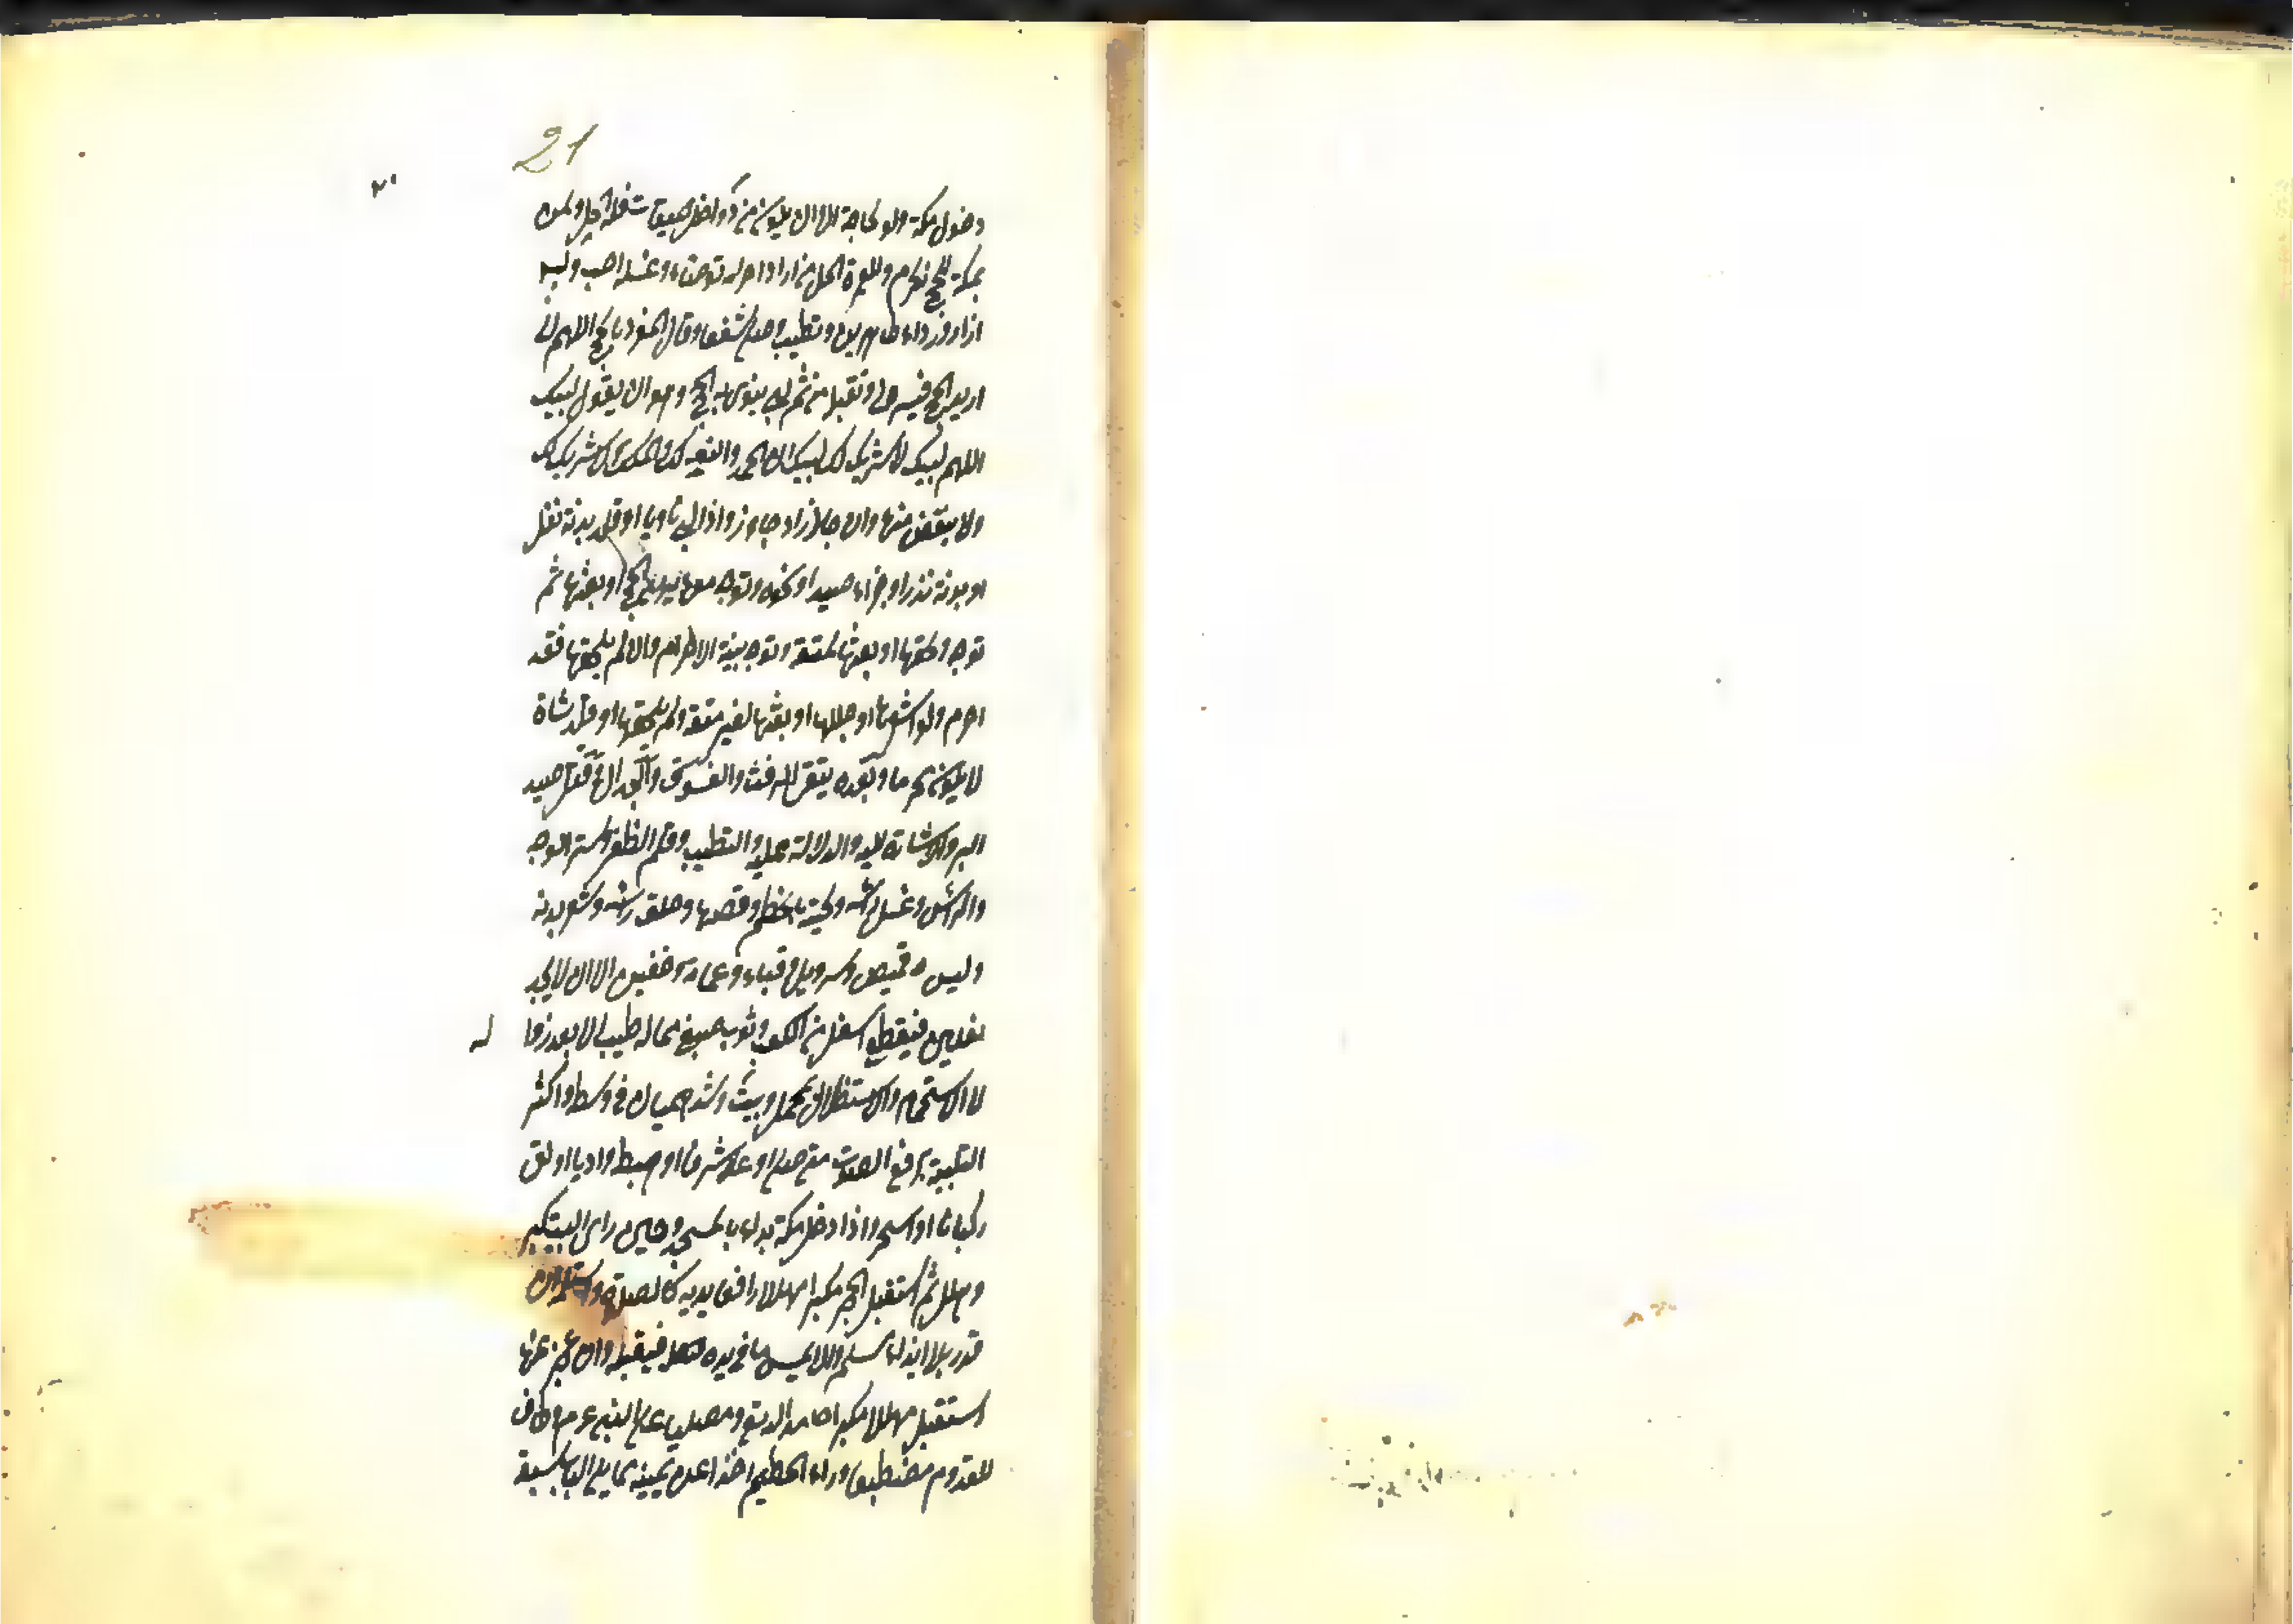 21
دخول مكة ولو لحاجة الا ان يكون من داخل ميقات فله الحل ولمن
بمكة للحج الحرم وللعمرة الحل من اراد احرامه توضأ وغسله احب ولبس
ازار ورداء طاهرين وتطيب وصلى شفعا وقال المفرد بالحج اللهم انى
اريد الحج فيسره لى وتقبله منى ثم لبى ينوى به الحج وهو ان يقول لبيك
اللهم لبيك لا شريك لك لبيك ان الحمد والنعمة لك والملك لا شريك لك
ولا ينقص منها وان زاد جاز واذا لبى ناويا او قلد بدنة نفل
او بدنة نذر او جزاء صيد او نحوه وتوجه معها يريد الحج او بعثها ثم
توجه ولحقها او بعثها لمتعة وتوجه بنية الاحرام وان لم يلحقها فقد
احرم ولو اشعرها او جللها او بعثها لغير متعة ولم يلحقها او قلد شاة
لا يكون محرما وبعده يتقى الرفث والفسوق والجدال وقتل صيد
البر والاشارة اليه والدلالة عليه والتطيب وقلم الظفر وستر الوجه
والرأس وغسل رأسه ولحيته بالخطمى وقصها وحلق رأسه وشعر بدنه
ولبس قميص وسراويل وقباء وعمامة وخفين الا ان لا يجد
نعلين فيقطع اسفل من الكعب وثوب صبغ بما له طيب الا بعد زوا
له
لا الاستحمام والاستظلال بمحمل وبيت وشد هميان فى وسطه واكثر
التلبية برفع الصوت متى صلى او علا شرفا او هبط واديا او لقى
ركبانا او اسحر واذا دخل مكة بدأ بالمسجد وحين رأى البيت كبر
وهلل ثم استقبل الحجر مكبرا مهللا رافعا يديه كالصلوة واستلمه ان
قدر بلا ايذاء مسلم والا يمس ما فى يده فيقبله وان عجز عنها
استقبل مهللا مكبرا حامدا لله تع ومصليا على النبى عم وطاف
للقدوم مضطبعا وراء الحطيم اخذا عن يمينه مما يلى الباب سبعة